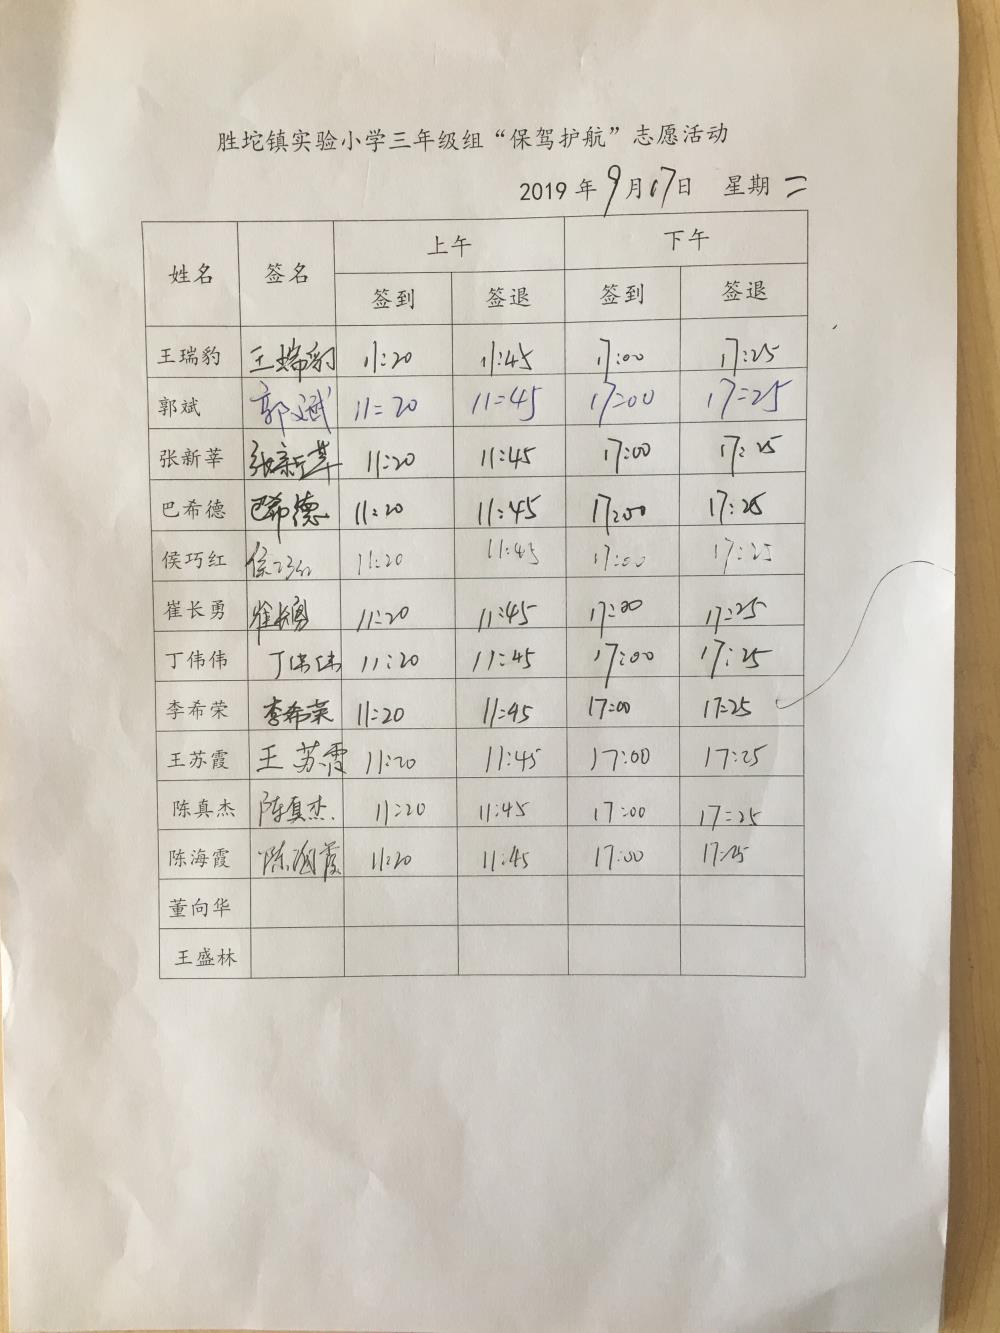 胜坨镇实验小学三年级组“保驾护航”志愿活动
2019年9月17日 星期二
姓名 签名 上午 下午
签到 签退 签到 签退
王瑞豹 王瑞豹 11:20 11:45 17:00 17:25
郭斌 郭斌 11:20 11:45 17:00 17:25
张新莘 张新莘 11:20 11:45 17:00 17:25
巴希德 巴希德 11:20 11:45 17:00 17:25
侯巧红 侯巧红 11:20 11:45 17:00 17:25
崔长勇 崔长勇 11:20 11:45 17:00 17:25
丁伟伟 丁伟伟 11:20 11:45 17:00 17:25
李希荣 李希荣 11:20 11:45 17:00 17:25
王苏霞 王苏霞 11:20 11:45 17:00 17:25
陈真杰 陈真杰 11:20 11:45 17:00 17:25
陈海霞 陈海霞 11:20 11:45 17:00 17:25
董向华
王盛林